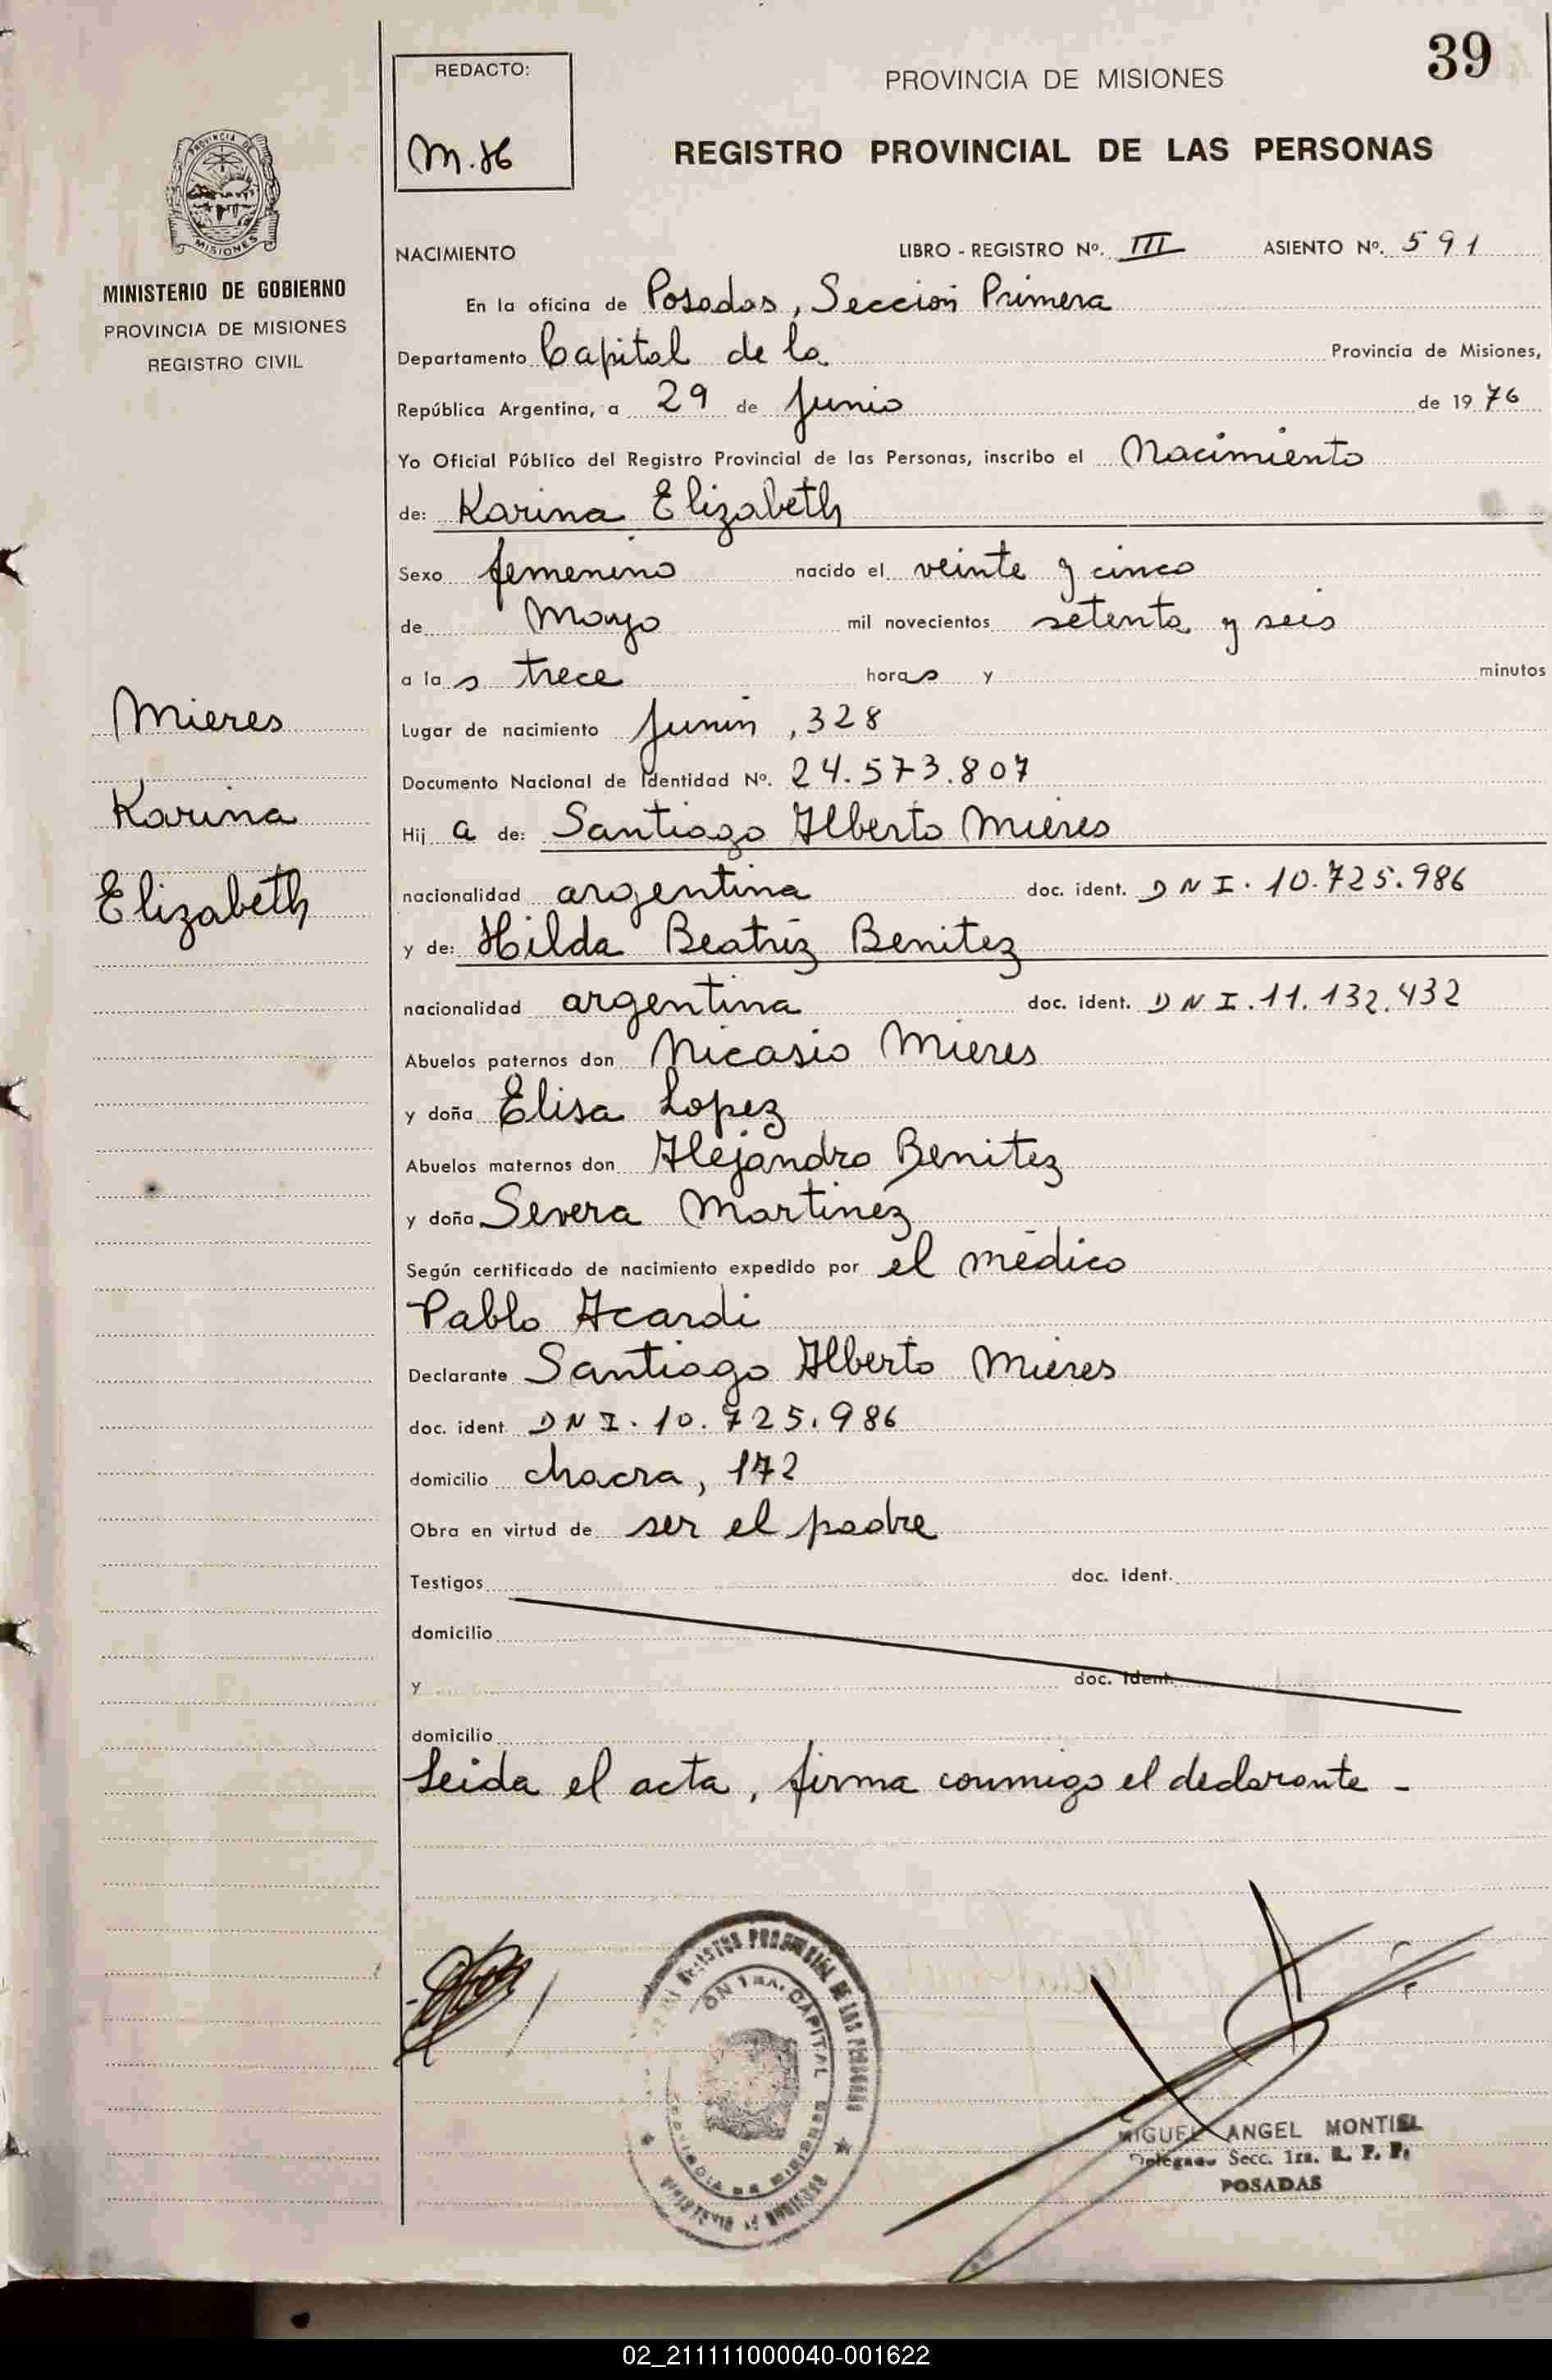 39
REDACTO:
M.H
PROVINCIA DE MISIONES
REGISTRO PROVINCIAL DE LAS PERSONAS
PROVINCIA DE
MISIONES
MINISTERIO DE GOBIERNO
PROVINCIA DE MISIONES
REGISTRO CIVIL
NACIMIENTO LIBRO - REGISTRO Nº. III ASIENTO Nº. 591
En la oficina de Posadas, Sección Primera
Departamento Capital de la Provincia de Misiones,
República Argentina, a 29 de Junio de 1976
Yo Oficial Público del Registro Provincial de las Personas, inscribo el Nacimiento
de: Karina Elizabeth
Sexo femenino nacido el veinte y cinco
de Mayo mil novecientos setenta y seis
a las trece horas y minutos
Lugar de nacimiento Junín, 328
Documento Nacional de Identidad Nº. 24.573.807
Hija de: Santiago Alberto Mieres
nacionalidad argentina doc. ident. DNI. 10.725.986
y de: Hilda Beatriz Benitez
nacionalidad argentina doc. ident. DNI. 11.132.432
Abuelos paternos don Nicasio Mieres
y doña Elisa Lopez
Abuelos maternos don Alejandro Benitez
y doña Severa Martinez
Según certificado de nacimiento expedido por el médico
Pablo Acardi
Declarante Santiago Alberto Mieres
doc. ident. DNI. 10.725.986
domicilio chacra, 172
Obra en virtud de ser el padre
Testigos doc. ident.
domicilio
y doc. ident.
domicilio
Leida el acta, firma conmigo el declarante -
Mieres
Karina
Elizabeth
PROVINCIAL DE LAS PERSONAS
CAPITAL
MIGUEL ANGEL MONTIEL
Delegado Secc. 1ra. R. P. P.
POSADAS
02_211111000040-001622